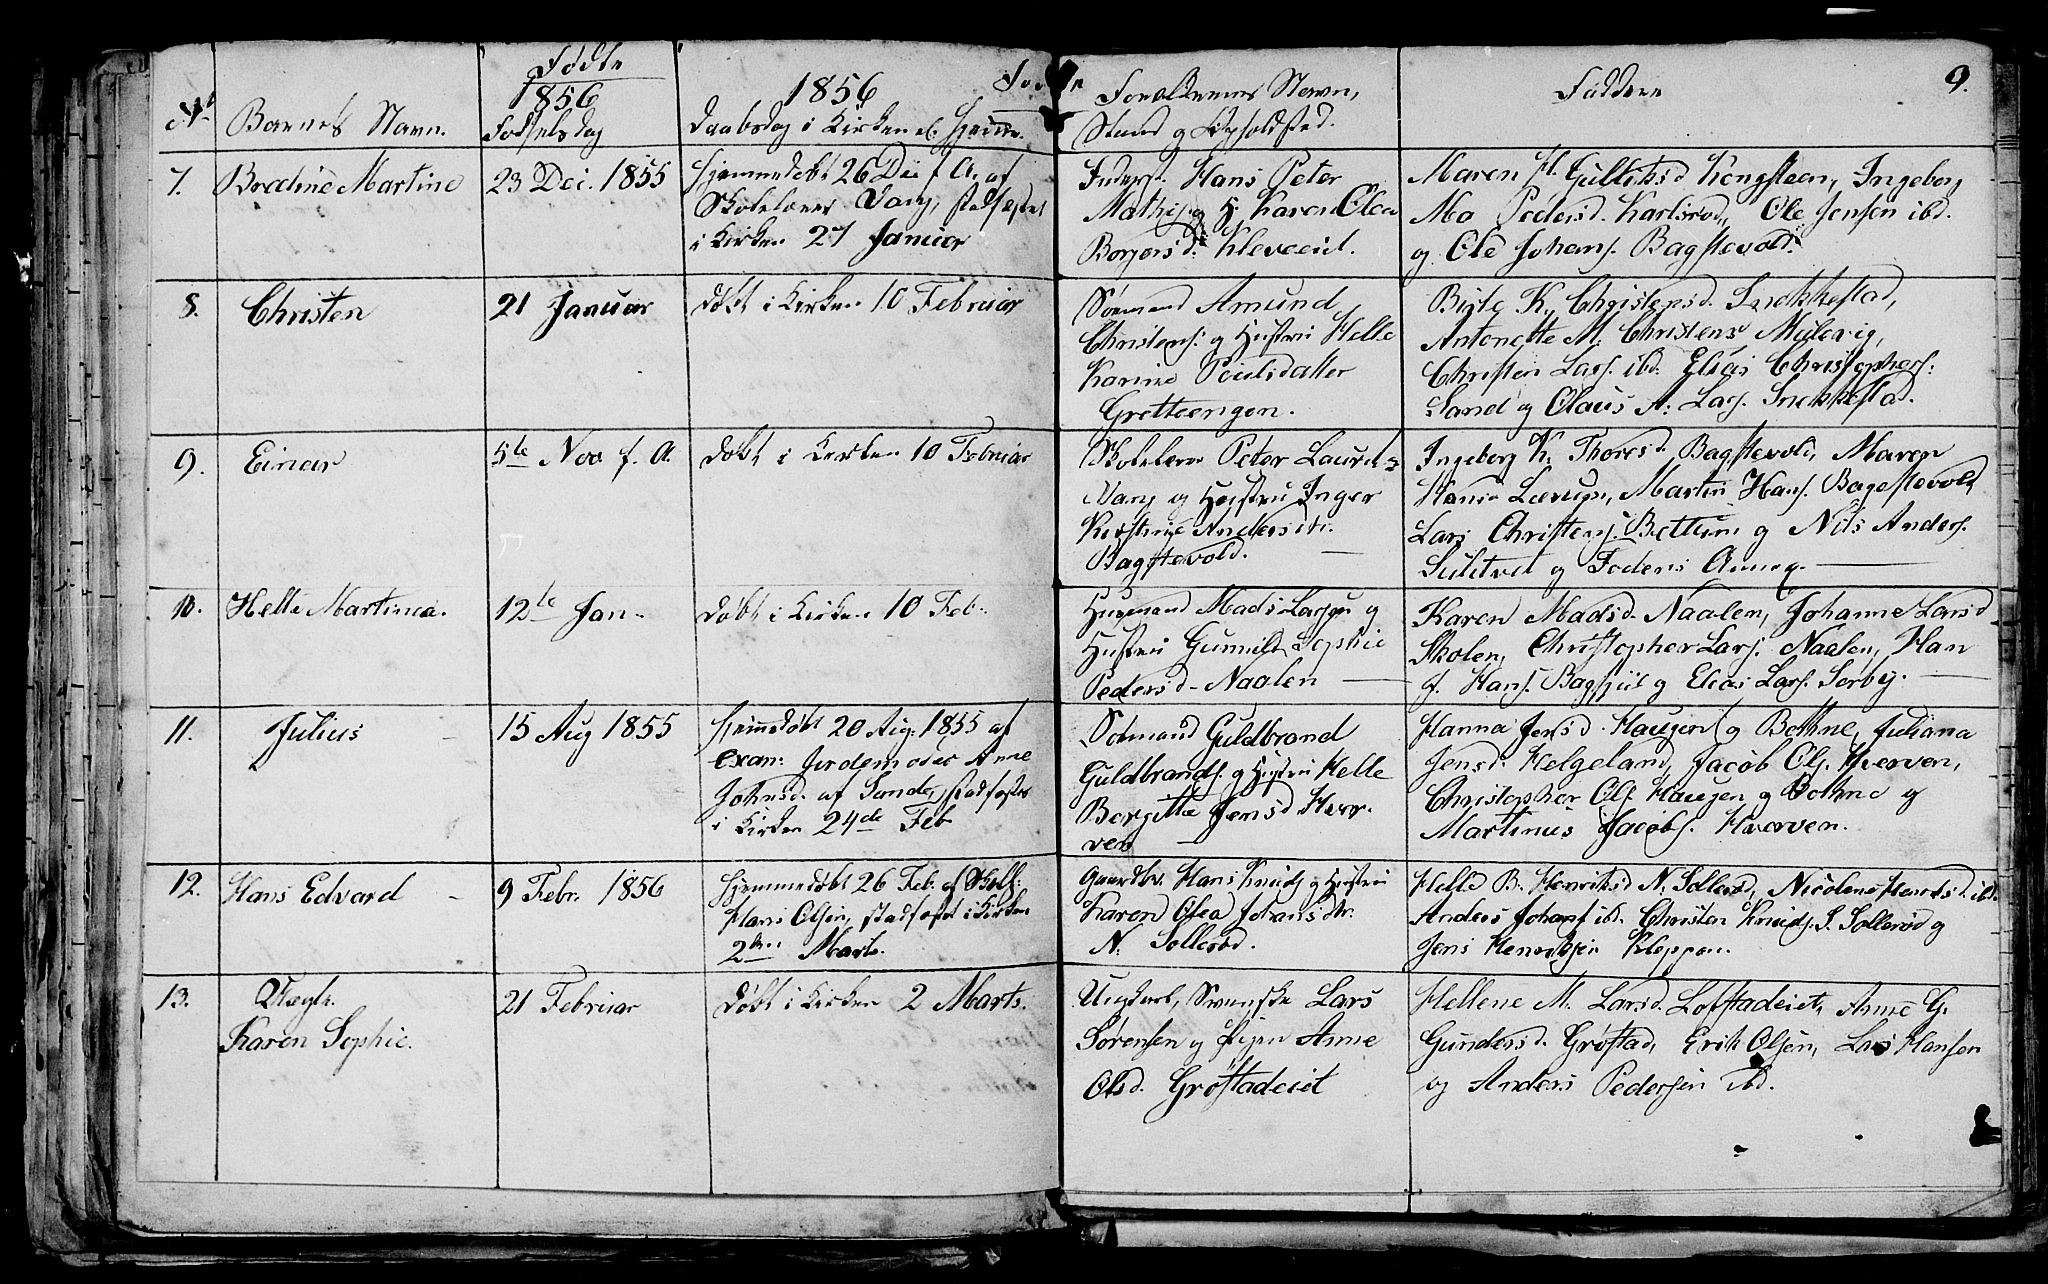 Fødte
1856
1856
Fødte
Forældrenes Navn,
Faddere
9.
No
Barnets Navn.
Fødselsdag
Daabsdag i Kirken el. Hjem.
Stand og Opholdsted.
7.
Bredine Martine
23 Dec. 1855
Hjemmedøbt 26 Dec f. A. af
Skolelærer Vang, stadfæstet
i Kirken 27 Januar
Inderst. Hans Peter
Mathis. og H. Karen Olea
Borgersd. Kleveeiet.
Maren H. Gulliksd Kongsteen, Ingeborg
Ma Pedersd. Karlsrød, Ole Jensen ibd.
og Ole Johans. Bagstevold.
8.
Christen
21 Januar
døbt i Kirken 10 Februar
Sømand Amund
Christens. og Hustru Helle
Karine Poulsdatter
Gretteengen.
Birte K. Christensd. Snekkestad,
Antonette M. Christens Mulevig,
Christen Lars. ibd. Elias Christophers.
Sand og Olaus A. Lars. Snekkestad.
9.
Einar
5te Nov f. A.
døbt i Kirken 10 Februar
Skolelærer Peter Laurits
Vang og Hustru Inger
Kirstine Andersdtr.
Bagstevold.
Ingeborg K. Thoresd Bagstevold, Maren
Hansd Martin Hans. Bagstevold,
Lars Christens. Bettum og Nils Anders.
og Faderen
10.
Helle Martinea.
12te Jan.
døbt i Kirken 10 Feb.
Huusmand Mads Larsen og
Hustru Gunnild Sophie
Pedersd. Naalen
Karen Madsd. Naalen, Johanne Larsd
Skolen, Christopher Lars. Naalen, Han
s. Hans. og Elias Lars. Sørby.
11.
Julius
15 Aug 1855
Hjemmedøbt 20 Aug. 1855 af
exam: Jordemoder Anne
Johnsd. af Sande, stadfæstet
i Kirken 24de Feb
Sømand Guldbrand
Guldbrands. og Hustru Helle
Borgitte Jensd Hver-
ven
Hanna Jensd. Haugen og Bothne, Juliana
Jensd. Helgeland, Jacob Ols. Hverven,
Christopher Ols. Haugen og Bothne og
Martinus Jacobs. Hverven.
12.
Hans Edvard
9 Febr. 1856
Hjemmedøbt 26 Feb. af Skoll:
Hans Olsen, stadfæstet i Kirken
2den Marts.
Gaardbr. Hans Knuds. og Hustru
Karen Olea Johansdtr.
N. Sollerød.
Helle B. Henriksd N. Sollerød, Nicoline Henriksd. ibd.
Anders Johans. ibd. Christen Knuds. S. Sollerød og
Jens Henriksen Kleppan.
13.
Uægte.
Karen Sophie.
21 Februar
døbt i Kirken 2 Marts.
Ungkarl, Svenske Lars
Sørensen og Pigen Anne
Olsd. Grøstadeiet
Hellene M. Larsd. Lofstadeiet, Anne G.
Gundersd. Grøstad, Erik Olsen, Lars Hansen
og Anders Pedersen ibd.